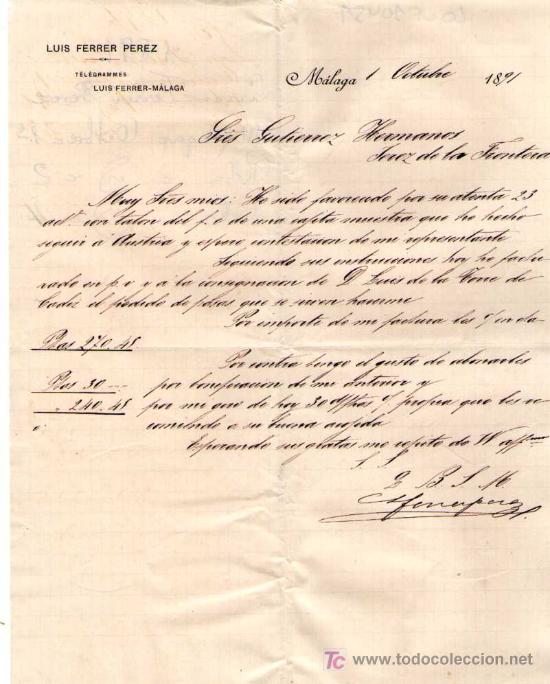 LUIS FERRER PEREZ
TÉLÉGRAMMES
LUIS FERRER-MÁLAGA
Málaga 1 Octubre 1891
Sres Gutierrez Hermanos
Jerez de la Frontera
Muy Sres mios: He sido favorecido por su atenta 23
con talon del f. c de una cajita muestra que he hecho
seguir á Austria y espero contestacion de mi representante
Siguiendo sus instrucciones hoy he factu-
rado en p. v y á la consignacion de D Luis de la Torre de
Cadiz el pedido de pasas que se sirven hacerme
Por importe de mi factura les
Ptas 270.48
Por contra tengo el gusto de abonarles
Ptas 30 por bonificacion de mi anterior y
" 240.48 por mi giro de hoy 30 propia que les re-
comiendo á su buena acojida
Esperando sus gratas me repito de W
S. S.
Q B. S. M.
todocoleccion
www.todocoleccion.net